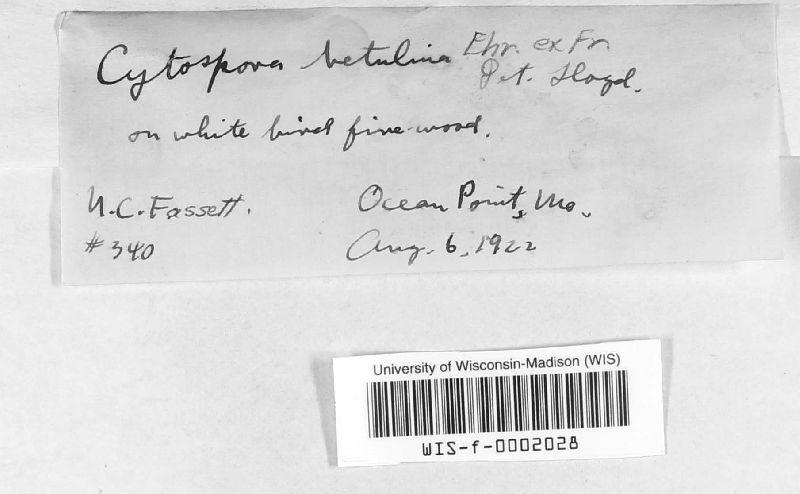 Cytospora betulina Ehr. ex Fr.
Det. Lloyd.
on white birch fire-wood.
N.C. Fassett.
Ocean Point, Me.
#340
Aug. 6, 1922
University of Wisconsin-Madison (WIS)
WIS-f-0002028